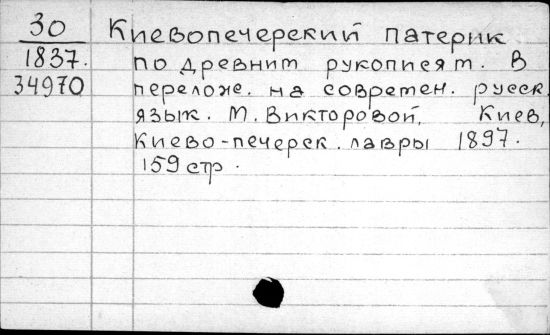 30 Киевопечерский патерик
1837. по древним рукописям. В
34970 перелож. на современ. русск.
язык. М. Викторовой, Киев,
Киево-печерск. лавры 1897.
159 стр.